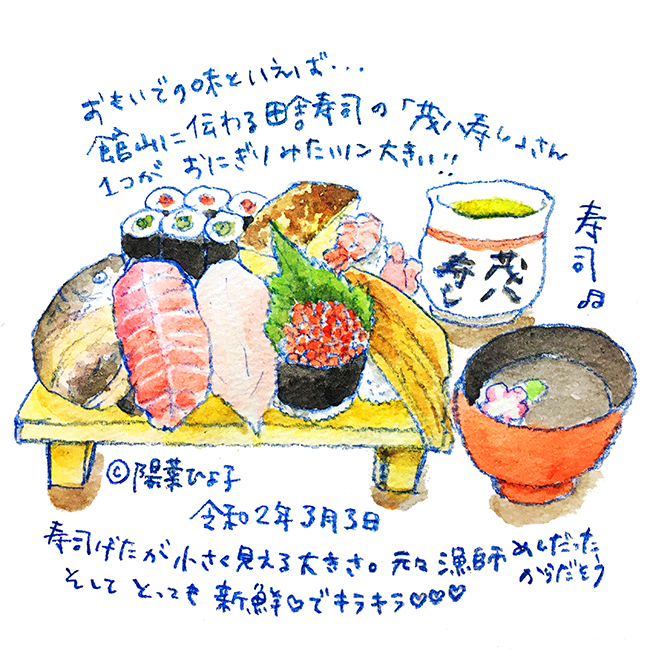 おもいでの味といえば・・・
館山に伝わる田舎寿司の「茂八寿し」さん
1つが おにぎりみたいで大きい!!
寿司
茂八
寿し
©陽菜ひよ子
令和2年3月3日
寿司げたが小さく見える大きさ。元々漁師めしだった
からだそう
そして とっても 新鮮♡でキラキラ♡♡♡